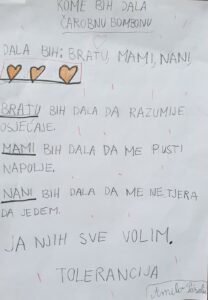 KOME BIH DALA
ČAROBNU BOMBONU
DALA BIH: BRATU, MAMI, NANI
BRATU BIH DALA DA RAZUMIJE
OSJEĆAJE.
MAMI BIH DALA DA ME PUSTI
NAPOLJE.
NANI BIH DALA DA ME NE TJERA
DA JEDEM.
JA NJIH SVE VOLIM.
TOLERANCIJA